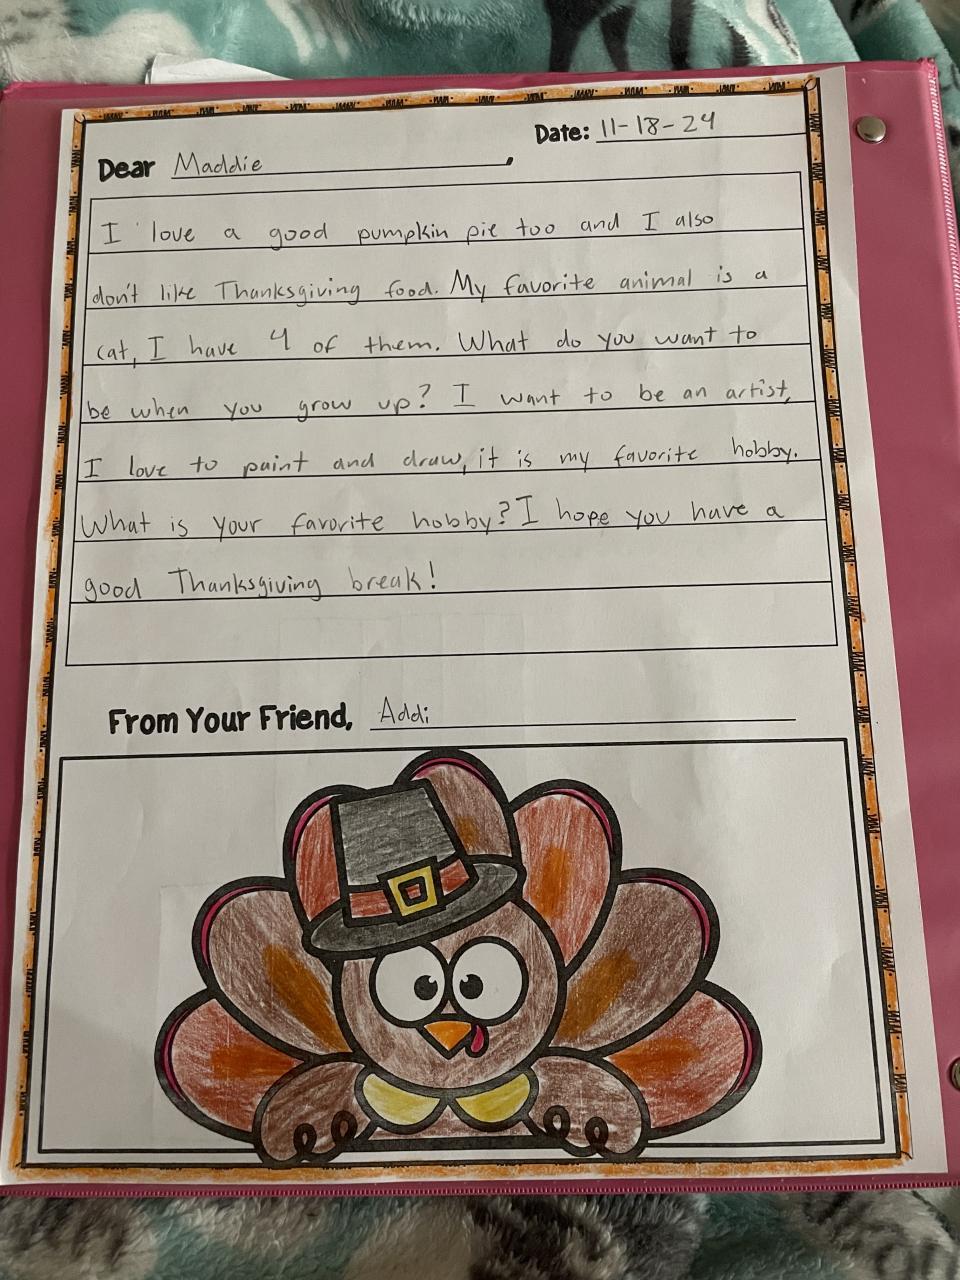 Date: 11-18-24
Dear Maddie,
I love a good pumpkin pie too and I also
don't like Thanksgiving food. My favorite animal is a
cat, I have 4 of them. What do you want to
be when you grow up? I want to be an artist,
I love to paint and draw, it is my favorite hobby.
What is your favorite hobby? I hope you have a
good Thanksgiving break!
From Your Friend, Addi